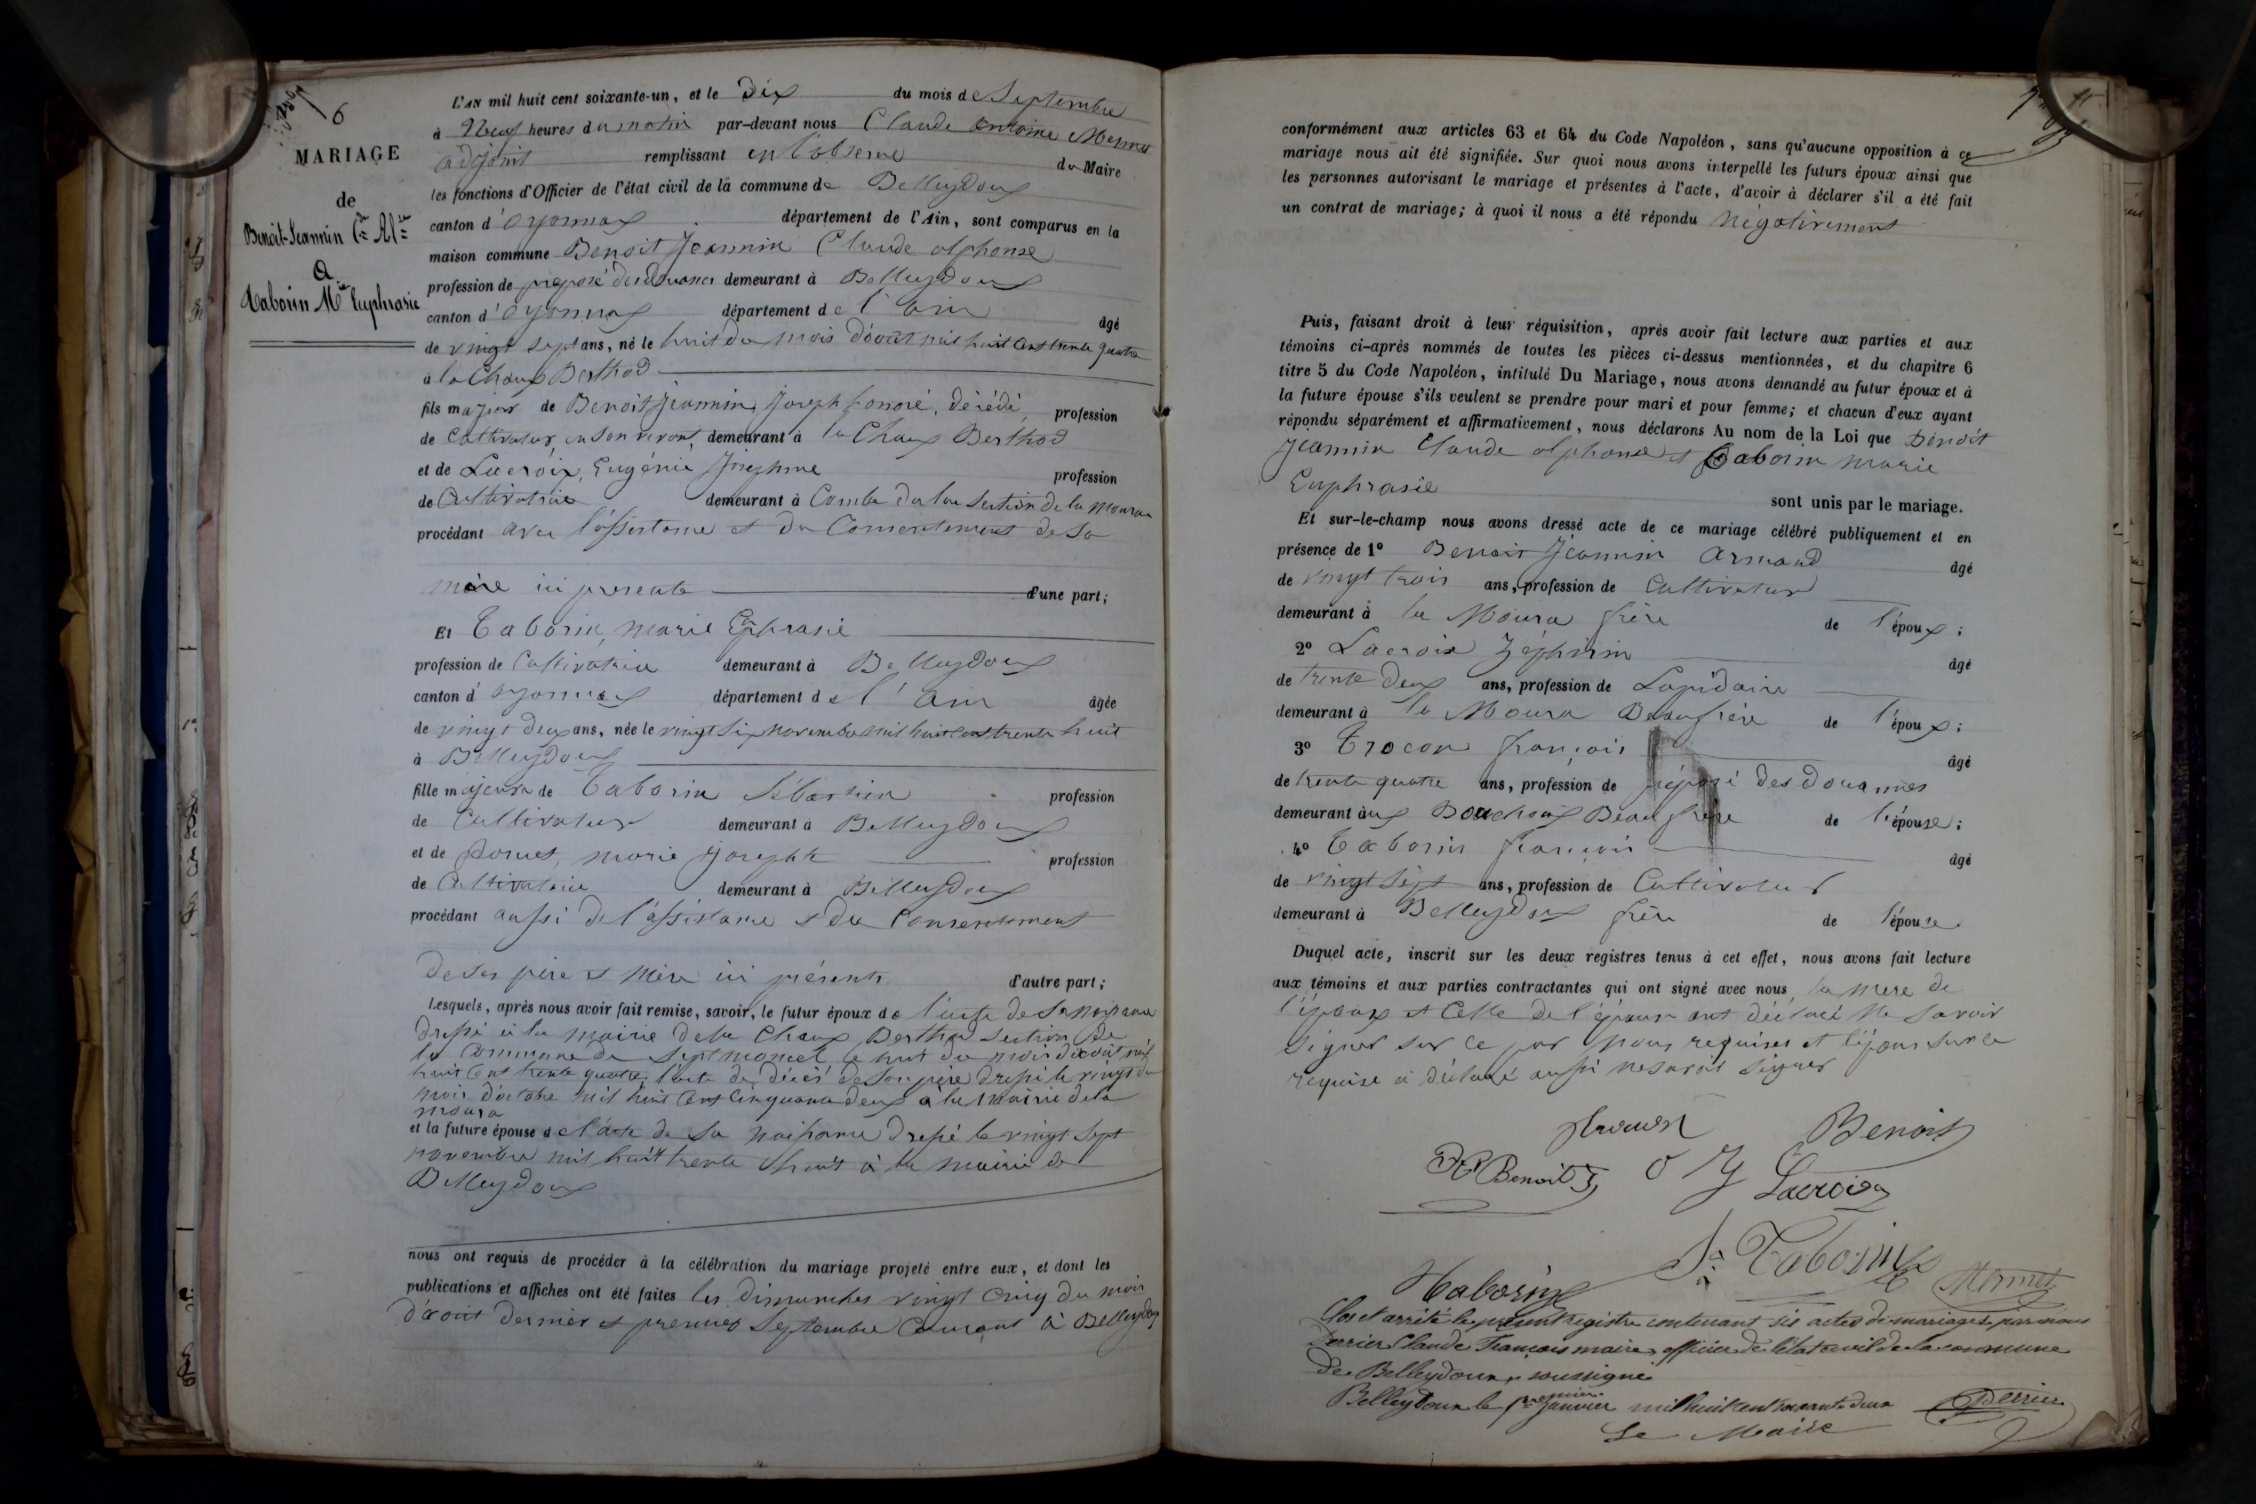 6
MARIAGE
de
Benoit-Jeannin Cde Alse
A
Taborin Mie Euphrasie
L'AN mil huit cent soixante-un, et le Dix du mois de Septembre
à Neuf heures du matin par-devant nous Claude Antoine Mermet
adjoint remplissant en l'absence du Maire
les fonctions d'Officier de l'état civil de la commune de Belleydoux
canton d'oyonnax département de l'Ain, sont comparus en la
maison commune Benoit Jeannin Claude alphonse
profession de préposé des douanes demeurant à Belleydoux
canton d'oyonnax département de l'ain âgé
de vingt sept ans, né le huit du mois d'août mil huit cent trente quatre
à la Chaux Berthod
fils majeur de Benoit Jeannin, Joseph honoré, décédé, profession
de Cultivateur en son vivant, demeurant à la Chaux Berthod
et de Lacroix, Eugénie Josephine profession
de Cultivatrice demeurant à Combe du lac section de la Moura
procédant avec l'assistance et du Consentement de sa
mère ici presente d'une part;
Et Taborin, marie Euphrasie
profession de Cultivatrice demeurant à Belleydoux
canton d'oyonnax département de l'ain âgée
de vingt deux ans, née le vingt six novembre mil huit cent trente huit
à Belleydoux
fille majeure de Taborin Sébastien profession
de Cultivateur demeurant à Belleydoux
et de marie Josephte profession
de Cultivatrice demeurant à Belleydoux
procédant aussi de l'assistance et du Consentement
de ses père et mère ici présents d'autre part;
Lesquels, après nous avoir fait remise, savoir, le futur époux de l'acte de sa naissance
dressé à la mairie de la Chaux Berthod section de
la Commune de Septmoncel le huit du mois d'août mil
huit cent trente quatre, l'acte de décès de son père dressé le vingt du
mois d'octobre mil huit cent cinquante deux à la mairie de la
moura
et la future épouse de l'acte de sa naissance dressé le vingt sept
novembre mil huit trente huit à la mairie de
Belleydoux
nous ont requis de procéder à la célébration du mariage projeté entre eux, et dont les
publications et affiches ont été faites les dimanches vingt cinq du mois
d'août dernier et premier Septembre Courant à Belleydoux
conformément aux articles 63 et 64 du Code Napoléon, sans qu'aucune opposition à ce
mariage nous ait été signifiée. Sur quoi nous avons interpellé les futurs époux ainsi que
les personnes autorisant le mariage et présentes à l'acte, d'avoir à déclarer s'il a été fait
un contrat de mariage; à quoi il nous a été répondu négativement
Puis, faisant droit à leur réquisition, après avoir fait lecture aux parties et aux
témoins ci-après nommés de toutes les pièces ci-dessus mentionnées, et du chapitre 6
titre 5 du Code Napoléon, intitulé Du Mariage, nous avons demandé au futur époux et à
la future épouse s'ils veulent se prendre pour mari et pour femme; et chacun d'eux ayant
répondu séparément et affirmativement, nous déclarons Au nom de la Loi que Benoit
Jeannin Claude alphonse et Taborin marie
Euphrasie sont unis par le mariage.
Et sur-le-champ nous avons dressé acte de ce mariage célébré publiquement et en
présence de 1º Benoit Jeannin Armand âgé
de vingt trois ans, profession de Cultivateur
demeurant à la Moura frère de l'époux;
2º Lacroix Zéphirin âgé
de trente deux ans, profession de Lapidaire
demeurant à la Moura Beaufrère de l'époux;
3º Trocon françois âgé
de trente quatre ans, profession de préposé des douannes
demeurant aux Bouchoux Beaufrère de l'épouse;
4º Taborin françois âgé
de vingt sept ans, profession de Cultivateur
demeurant à Belleydoux frère de l'épouse
Duquel acte, inscrit sur les deux registres tenus à cet effet, nous avons fait lecture
aux témoins et aux parties contractantes qui ont signé avec nous la mere de
l'époux et Celle de l'épouse ont déclaré ne savoir
signer sur ce par nous requises et l'épouse sur ce
requise a déclaré aussi ne savoir signer
Benoit
Benoit J
Z Lacroix
Taborin
Taborin
Mermet
Clos et arrêté le présent registre contenant six actes de mariages par nous
Perrier Claude François maire officier de l'état civil de la commune
de Belleydoux soussigné
Belleydoux le premier Janvier mil huit cent soixante deux
Perrier
Le Maire